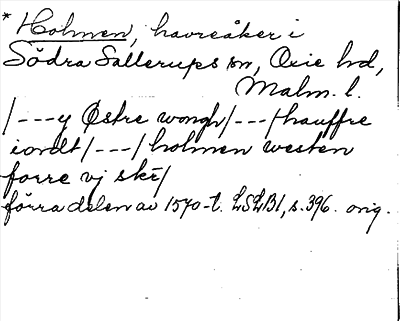 * Holmen, havreåker i
Södra Sallerups sn, Oxie hd,
Malm. l.
/---y Østre wongh/---/hauffre
iordt/---/holmen westen
forre vj skē/
förra delen av 1570-t. LSLB1, s. 396. orig.